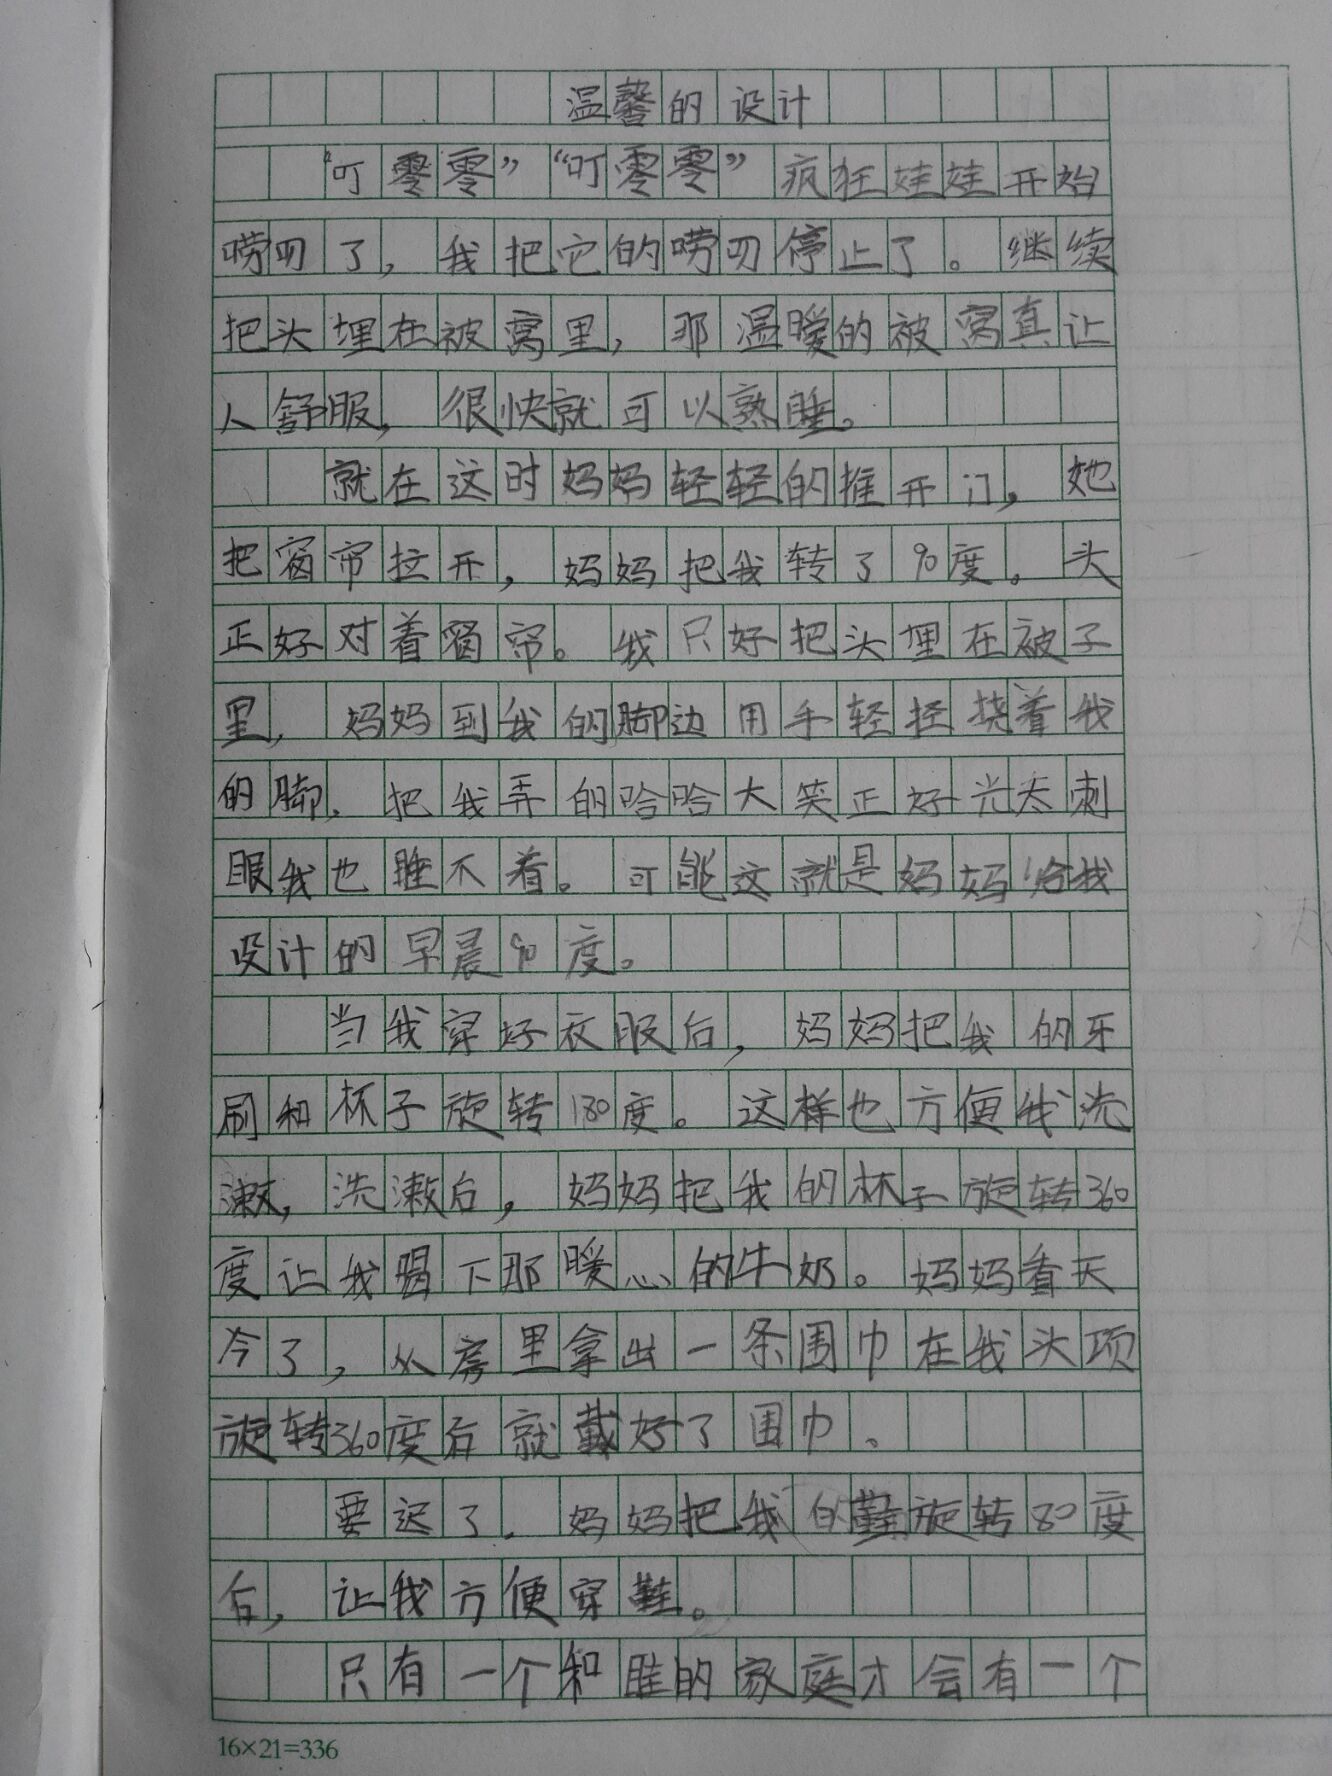 温馨的设计
“叮零零”“叮零零”疯狂娃娃开始
唠叨了，我把它的唠叨停止了。继续
把头埋在被窝里，那温暖的被窝真让
人舒服，很快就可以熟睡。
就在这时妈妈轻轻的推开门，她
把窗帘拉开，妈妈把我转了90度。头
正好对着窗帘。我只好把头埋在被子
里，妈妈到我的脚边用手轻轻挠着我
的脚，把我弄的哈哈大笑正好光太刺
眼我也睡不着。可能这就是妈妈给我
设计的早晨90度。
当我穿好衣服后，妈妈把我的牙
刷和杯子旋转180度。这样也方便我洗
漱，洗漱后，妈妈把我的杯子旋转360
度让我喝下那暖心的牛奶。妈妈看天
冷了，从房里拿出一条围巾在我头项
旋转360度后就戴好了围巾、
要迟了，妈妈把我的鞋旋转80度
后，让我方便穿鞋。
只有一个和睦的家庭才会有一个
16×21=336